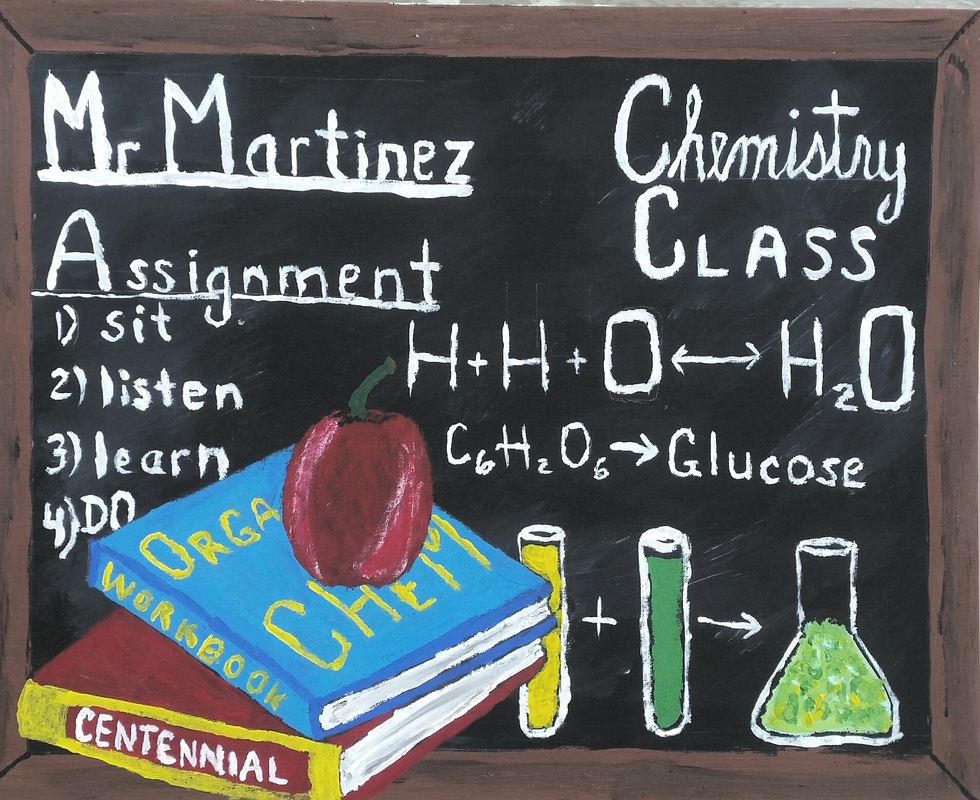 Mr Martinez
Chemistry
CLASS
Assignment
1) sit
2) listen
3) learn
4) DO
H + H + O ↔ H₂O
C₆H₂O₆ → Glucose
+ →
ORGA
CHEM
WORKBOOK
CENTENNIAL